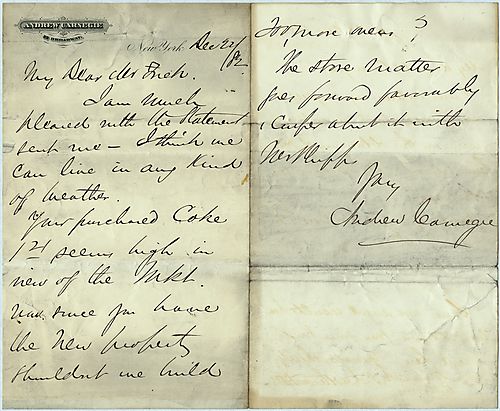 ANDREW CARNEGIE
New York Dec 24/82
My Dear Mr Frick.
I am much
pleased with the Statement
sent me — I think we
can live in any kind
of weather.
Your purchased Coke
seems high in
view of the Mkt.
since you have
the new property
shouldn't we build
100 more ovens?
The store matter
goes forward favorably
about it with
Mr Phipps
Yours
Andrew Carnegie